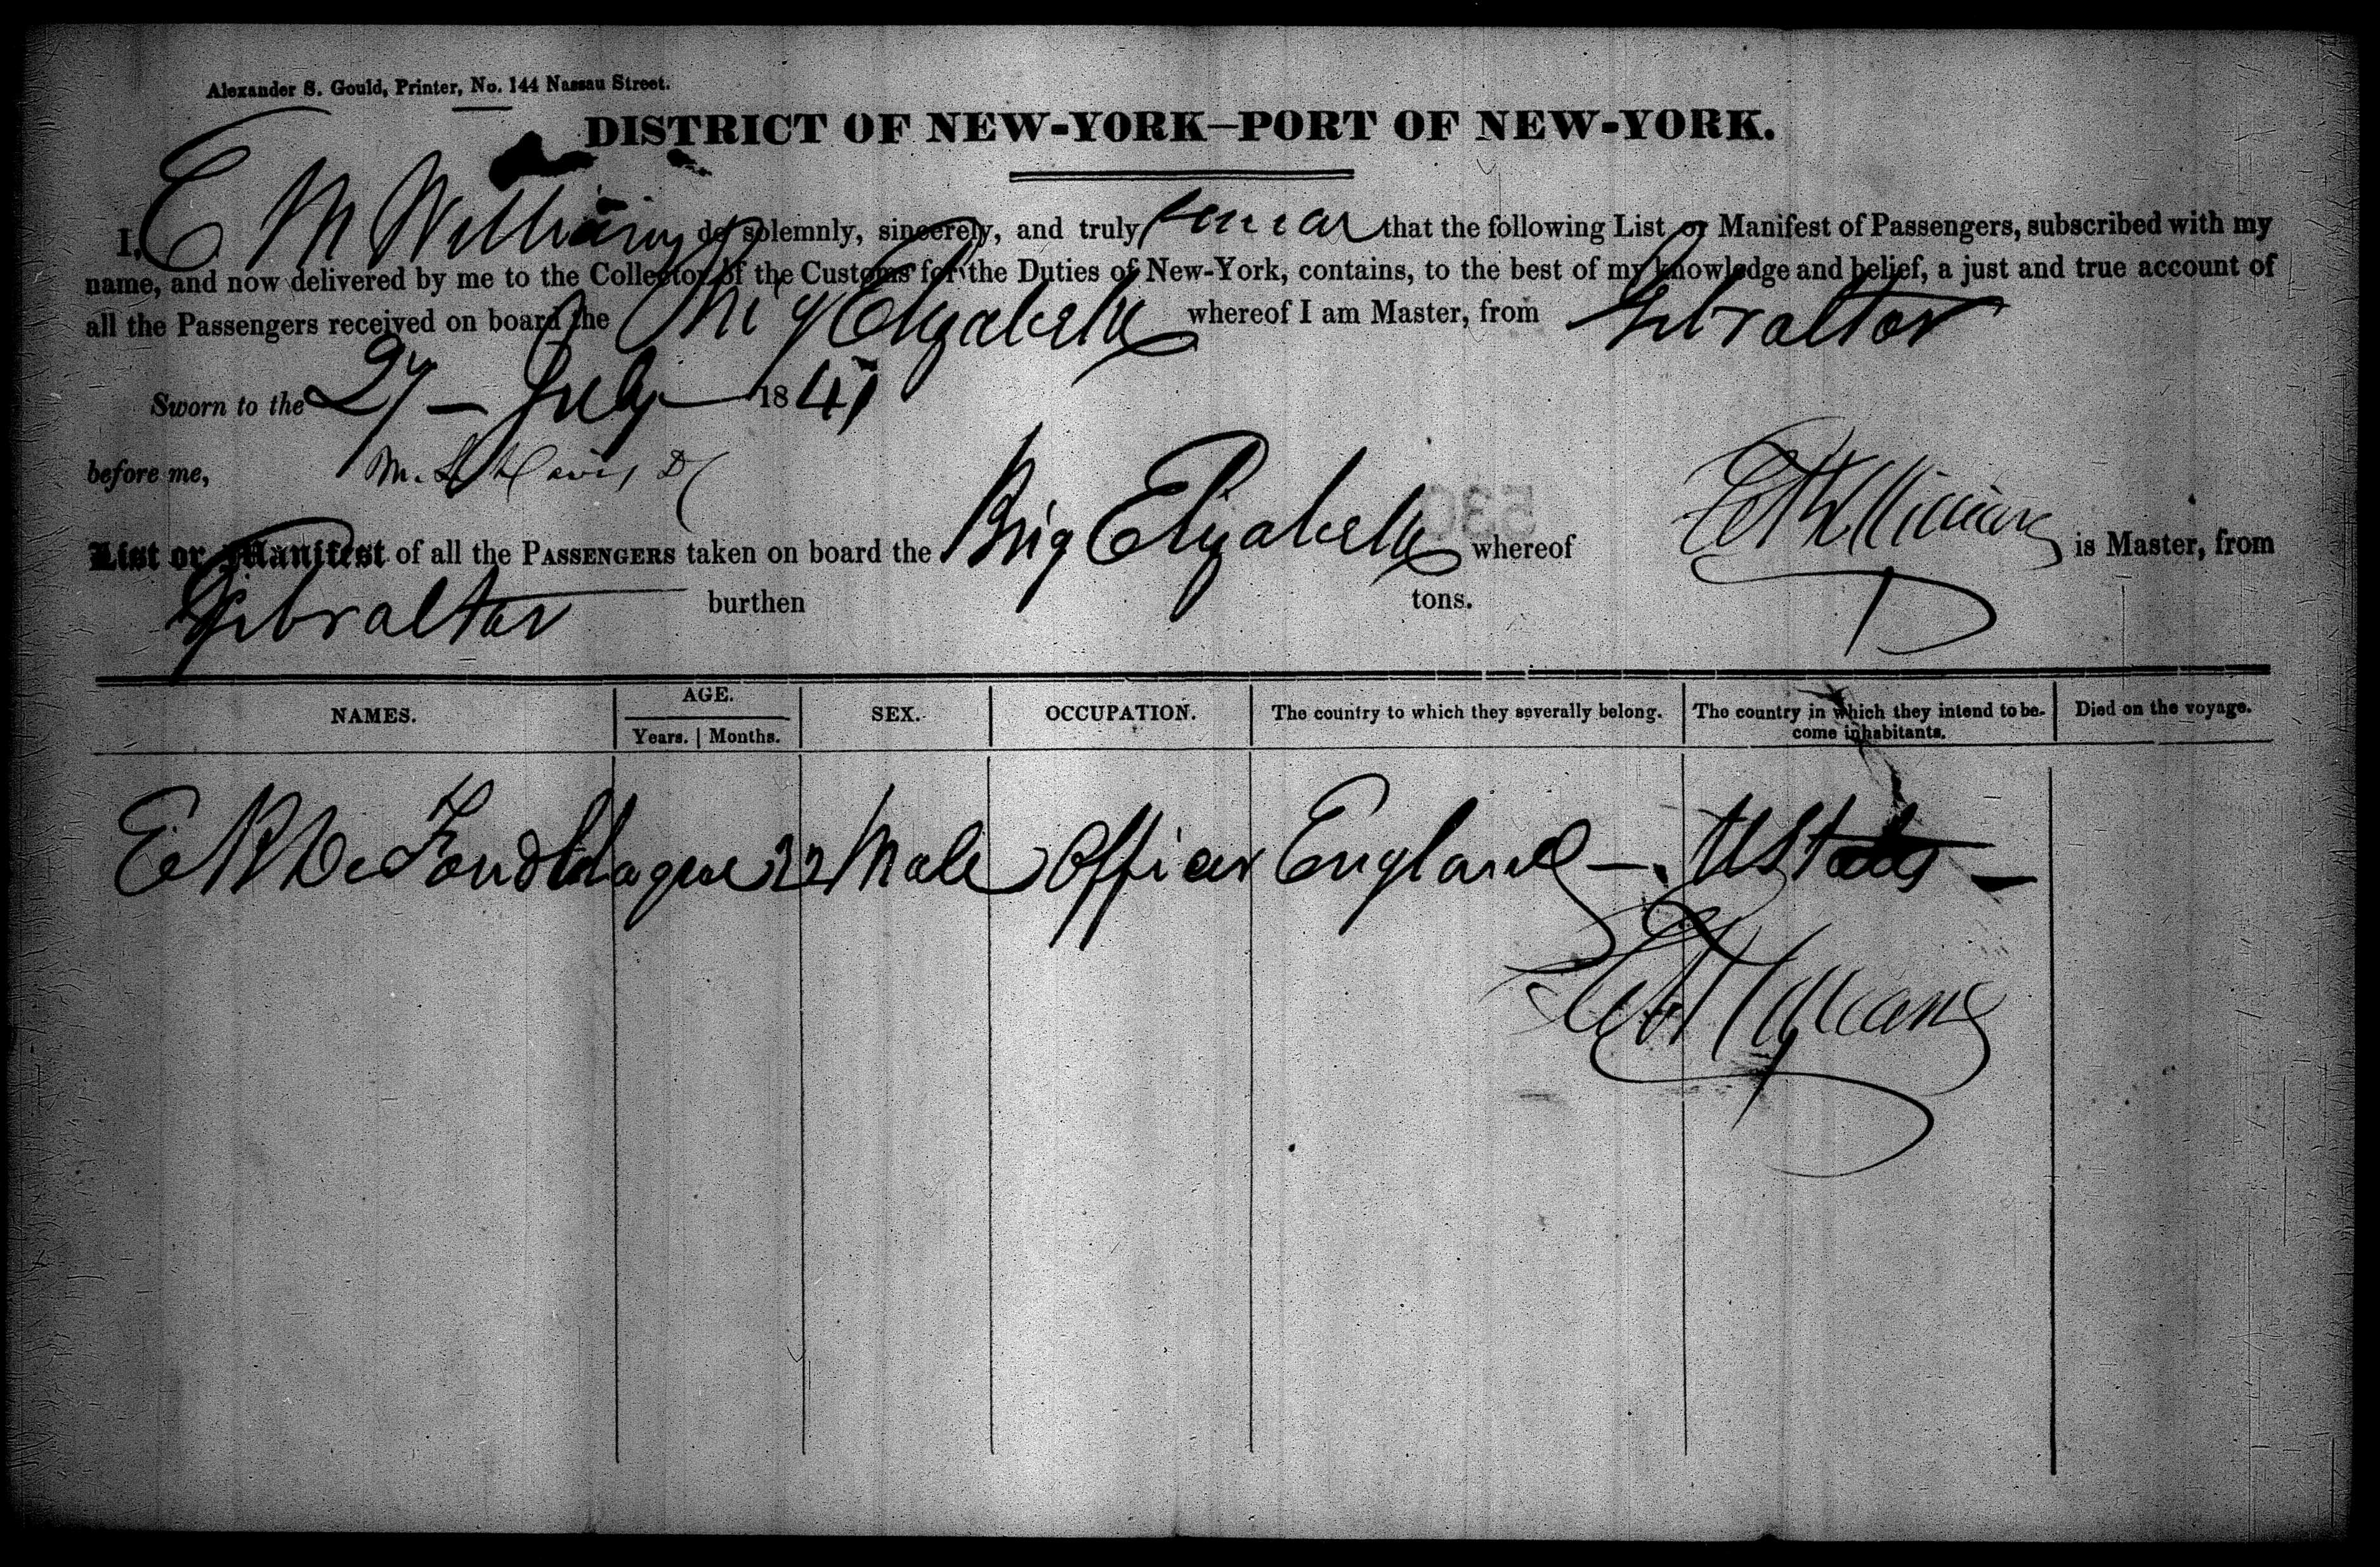 Alexander S. Gould, Printer, No. 144 Nassau Street.
DISTRICT OF NEW-YORK—PORT OF NEW-YORK.
I, E M Williams do solemnly, sincerely, and truly swear that the following List or Manifest of Passengers, subscribed with my
name, and now delivered by me to the Collector of the Customs for the Duties of New-York, contains, to the best of my knowledge and belief, a just and true account of
all the Passengers received on board the Brig Elizabeth whereof I am Master, from Gibraltar
Sworn to the 27 - July 1841
before me,
List or Manifest of all the PASSENGERS taken on board the Brig Elizabeth whereof E M Williams is Master, from
Gibraltar burthen tons.
NAMES. AGE. SEX. OCCUPATION. The country to which they severally belong. The country in which they intend to be- Died on the voyage.
Years. Months. come inhabitants.
Male Officer England — U States —
E M Williams